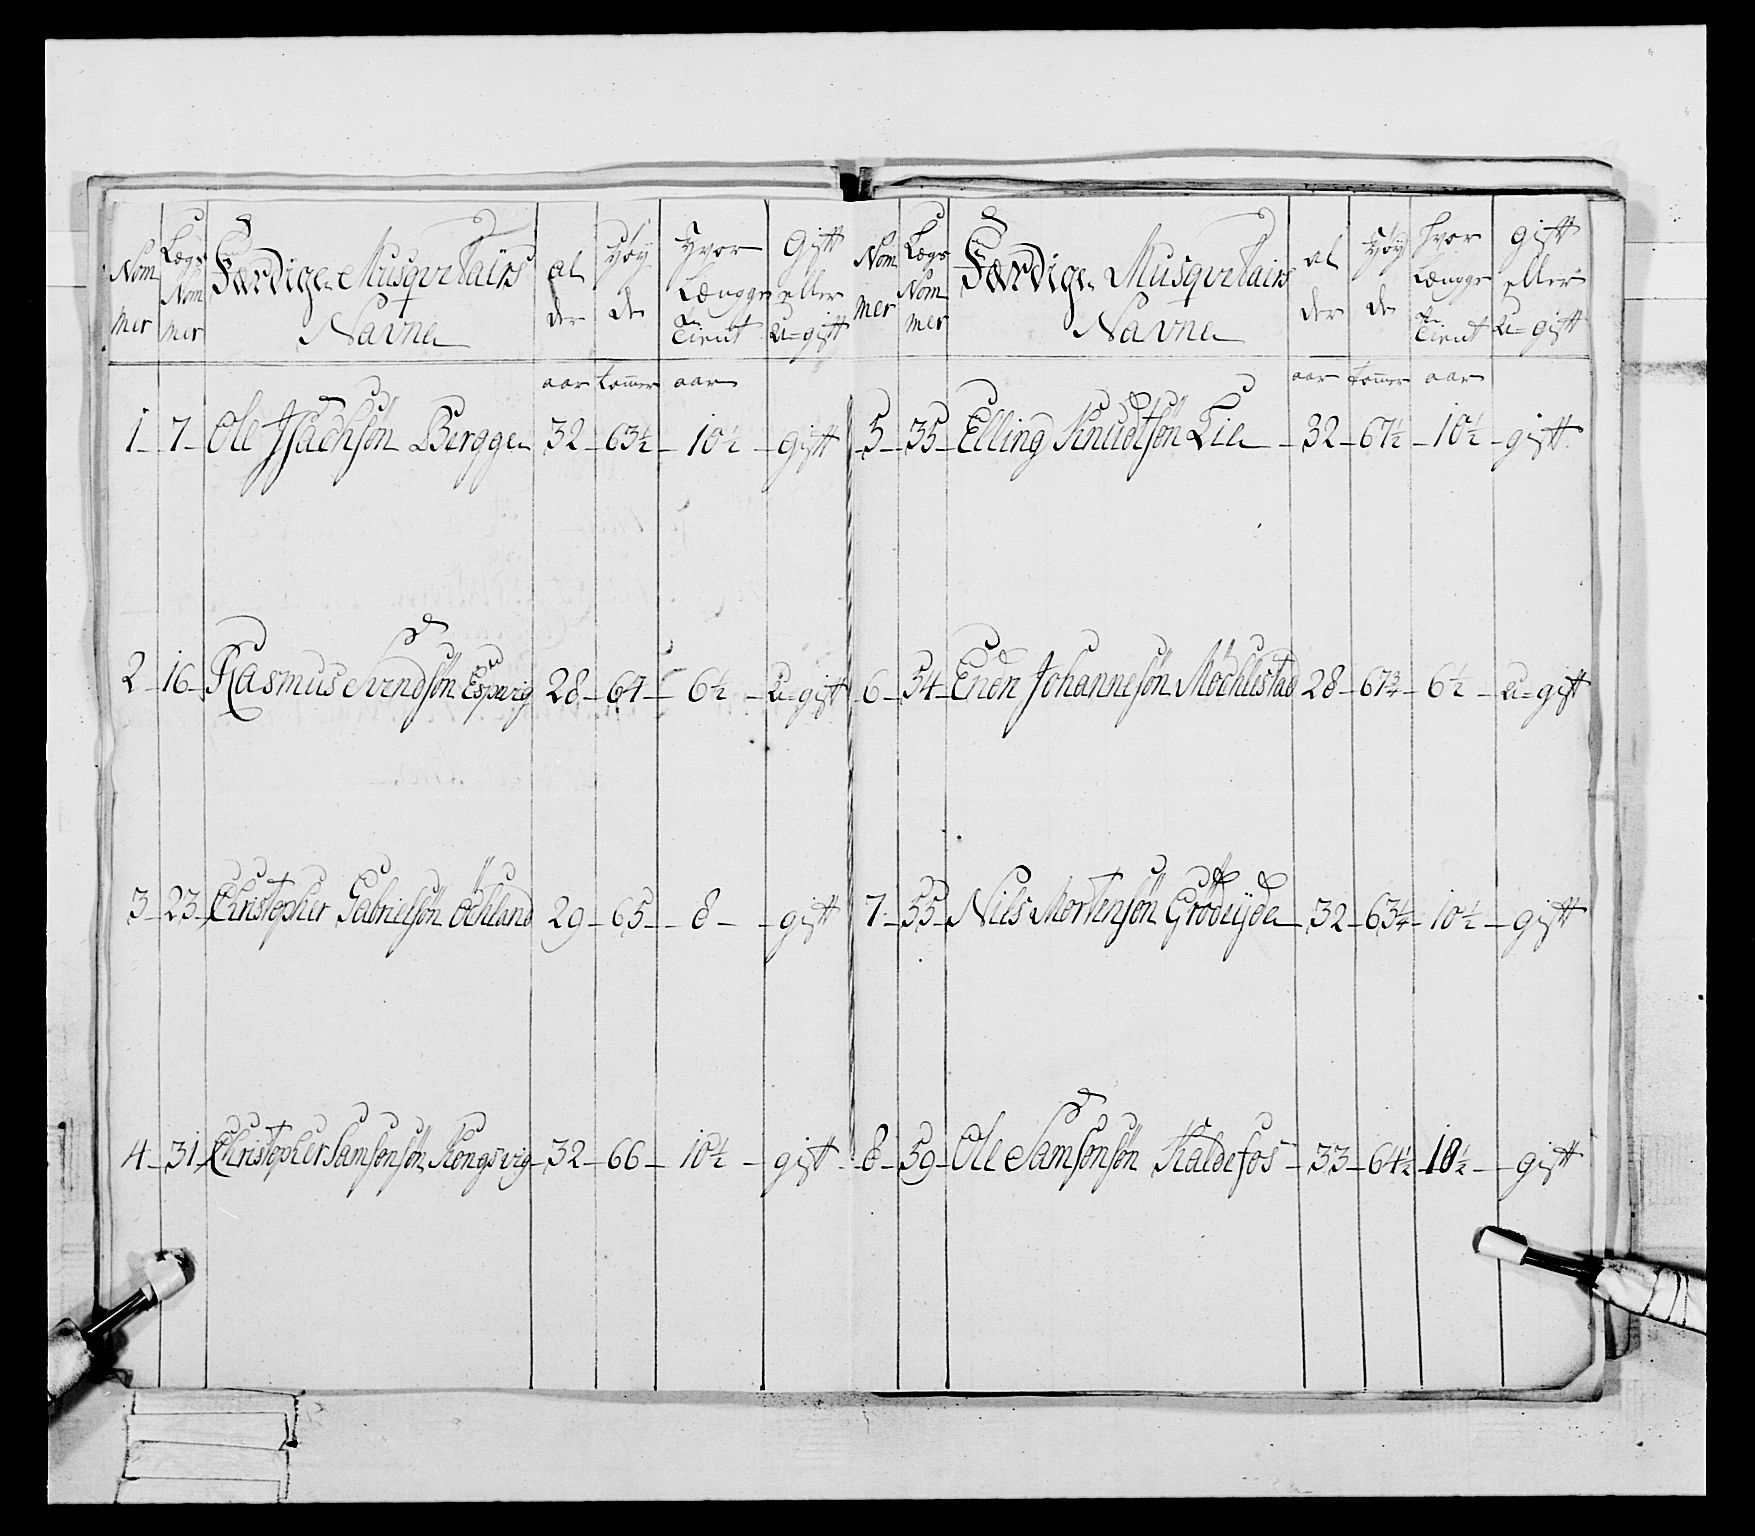 Nom mer | Lægs Nom mer | Færdige Musqvetairs Navne | al der | Høy de | Hvor Længge tient | Gift eller U=gift
aar | tomer | aar
1 – 7 – Ole Isachsøn Bergge 32 – 63½ – 10½ – gift
2 – 16 – Rasmus Svendsøn Espevig 28 – 64 – 6½ – U=gift
3 – 23 – Christopher Gabrielsøn Øchland 29 – 65 – 8 – gift
4 – 31 – Christopher Samsonsøn Kongsvig 32 – 66 – 10½ – gift
Nom mer | Lægs Nom mer | Færdige Musqvetairs Navne | al der | Høy de | hvor Længge tient | gift eller U=gift
aar | tomer | aar
5 – 35 – Elling Knudtsøn Lie – 32 – 67½ – 10½ – gift
6 – 54 – Enon Johannesøn Møchlestad 28 – 67¾ – 6½ – U=gift
7 – 55 – Niels Mortensøn Grødeijde – 32 – 63¼ – 10½ – gift
8 – 59 – Ole Samsonsøn Kaldefos – 33 – 64½ – 10½ – gift